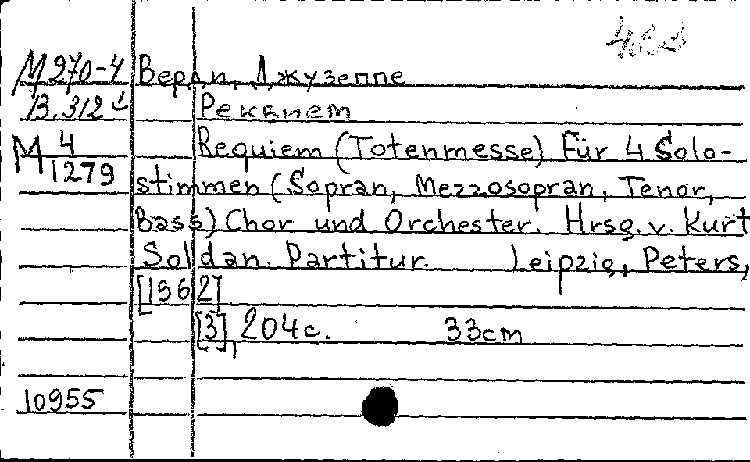 М 270-4 Верди, Джузеппе
В.312 Реквием
М 4 Requiem (Totenmesse) Für 4 Solo-
1279 stimmen (Sopran, Mezzosopran, Tenor,
Bass) Chor und Orchester. Hrsg. v. Kurt
Soldan. Partitur. Leipzig, Peters,
[1962]
[3], 204 с. 33cm
10955